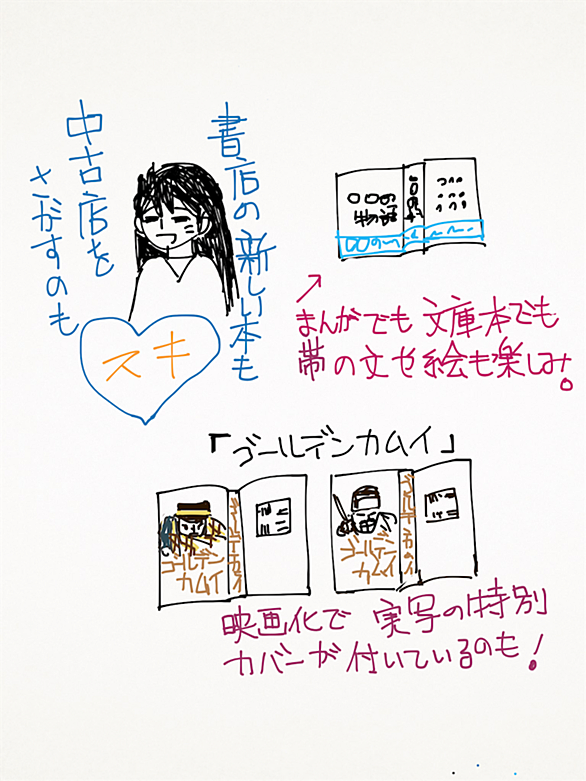 書店の新しい本も
中古店を
さがすのも
スキ
〇〇の
物語
まんがでも文庫本でも
帯の文や絵も楽しみ。
「ゴールデンカムイ」
ゴールデン
カムイ
ゴールデンカムイ
ゴールデン
カムイ
ゴールデンカムイ
映画化で実写の特別
カバーが付いているのも!